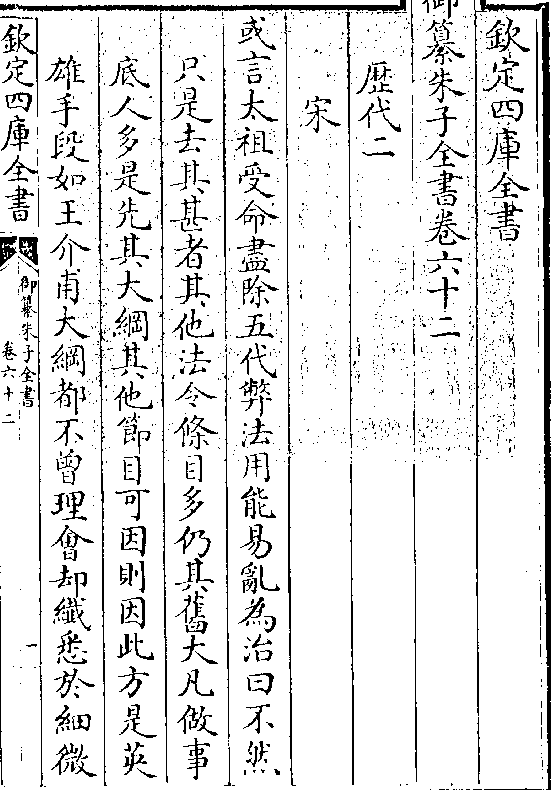 欽定四庫全書
御纂朱子全書卷六十二
歴代二
宋
或言太祖受命盡除五代弊法用能易亂為治曰不然
只是去其甚者其他法令條目多仍其舊大凡做事
底人多是先其大綱其他節目可因則因此方是英
雄手段如王介甫大綱都不曾理會却纖悉於細微
欽定四庫全書
御纂朱子全書
卷六十二
一